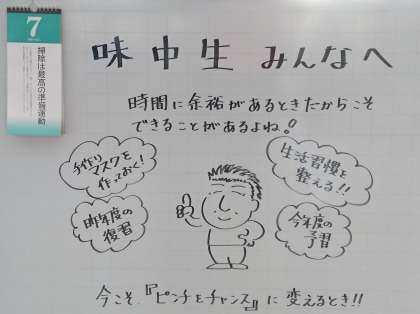 7
掃除は最高の準備運動
味中生 みんなへ
時間に余裕があるときだからこそ
できることがあるよね!
手作り
マスクを
作っておく!
生活習慣を
整える!!
昨年度の
復習
今年度の
予習
今こそ、『ピンチをチャンス』に変えるとき!!